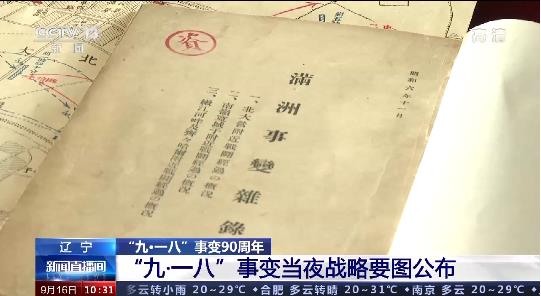 CCTV 13
新闻
高清
資
昭和六年十一月
滿洲事變雜錄
一、北大營附近戰鬪經過の概況
二、南嶺寬城子附近戰鬪經過の概況
三、嫩江河畔及齊々哈爾附近戰鬪經過の概況
辽宁
“九·一八”事变90周年
新闻直播间
“九·一八”事变当夜战略要图公布
9月16日 10:31 多云转小雨 20~29℃ 合肥 多云转晴 20~31℃ 南京 多云 20~29℃